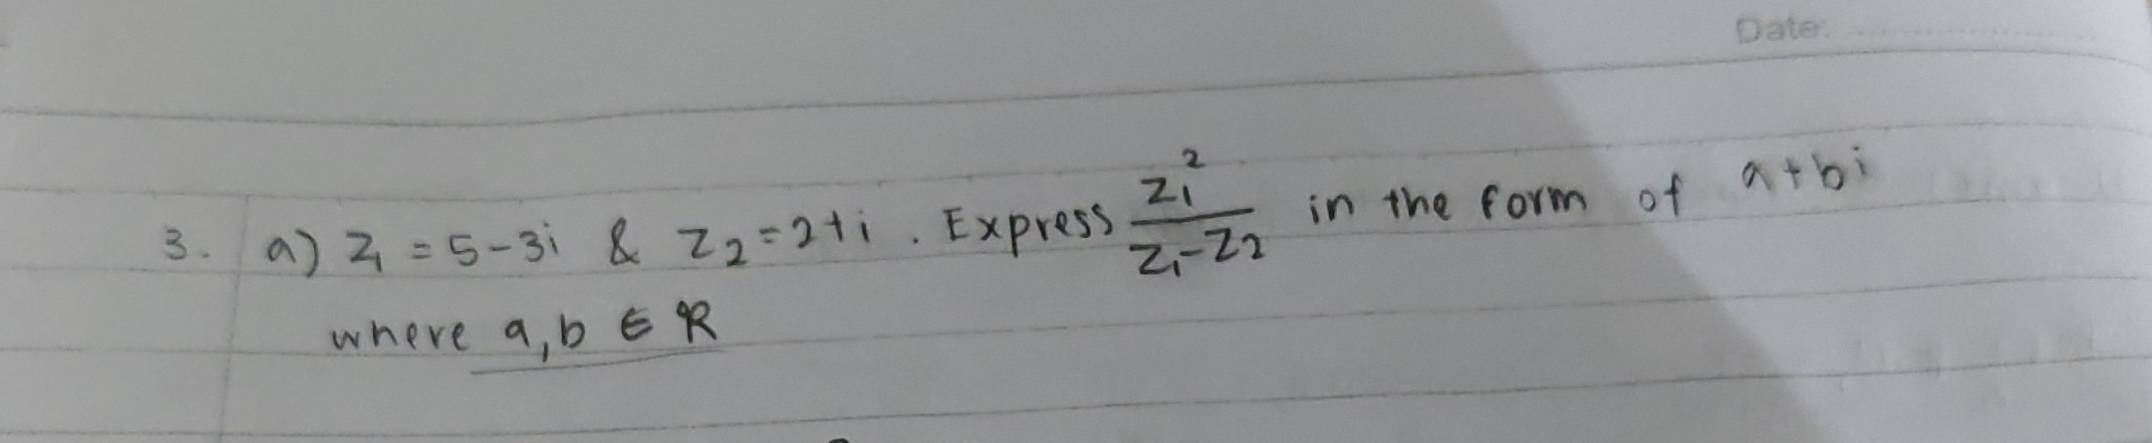 Date:
3. a) Z₁ = 5-3i & Z₂ = 2+i . Express Z₁²/(Z₁-Z₂) in the form of a+bi
where a,b ∈ ℝ